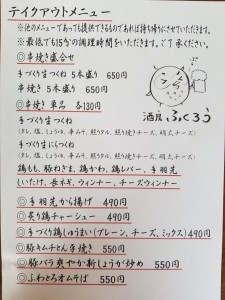 テイクアウトメニュー
※他のメニューであっても提供できるものであれば持ち帰りにさせていただきます。
※最低でも15分の調理時間をいただきます。ご了承ください。
◎串焼き盛合せ
手づくり生つくね 5本盛り 650円
串焼き 5本盛り 650円
◎串焼き単品 各130円
手づくり生つくね
(タレ、塩、しょうゆ、辛みそ、照りタル、照り焼きチーズ、明太チーズ)
手づくり生にらつくね
(タレ、塩、しょうゆ、辛みそ、照りタル、照り焼きチーズ、明太チーズ)
鶏もも、豚ねぎま、鶏かわ、鶏レバー、手羽先
しいたけ、長ネギ、ウィンナー、チーズウィンナー
酒房 ふくろう
◎手羽先から揚げ 490円
◎炙り鶏チャーシュー 490円
◎手づくり鶏ぎょうざ(プレーン、チーズ、ミックス) 490円
◎豚キムチとん平焼き 550円
◎豚バラ爽やか新しょうが炒め 550円
◎ふわとろオムそば 550円